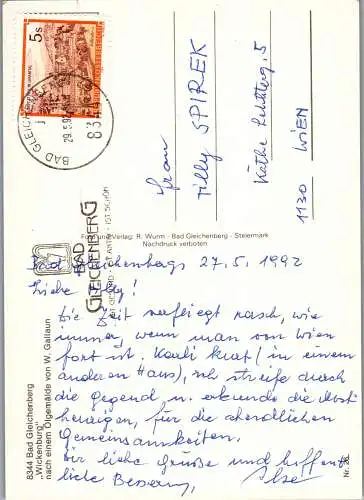 5s
BAD GLEICHENBERG
29.5.92
8344
BAD
GLEICHENBERG
Frau
Tilly SPIREK
1130 WIEN
Foto und Verlag: R. Wurm - Bad Gleichenberg - Steiermark
Nachdruck verboten
Bad Gleichenberg, 27.5.1992
Liebe Tilly!
Die Zeit verfliegt rasch, wie
immer, wenn man von Wien
fort ist. Karli kurt (in einem
anderen Haus), ich streife durch
die Gegend u. erkunde die
heurigen, für die abendlichen
Gemeinsamkeiten.
Wir liebe Grüße und hoffent-
liche Besserung, Ilse
8344 Bad Gleichenberg
"Wickenburg"
nach einem Ölgemälde von W. Gallaun
Nr. 26